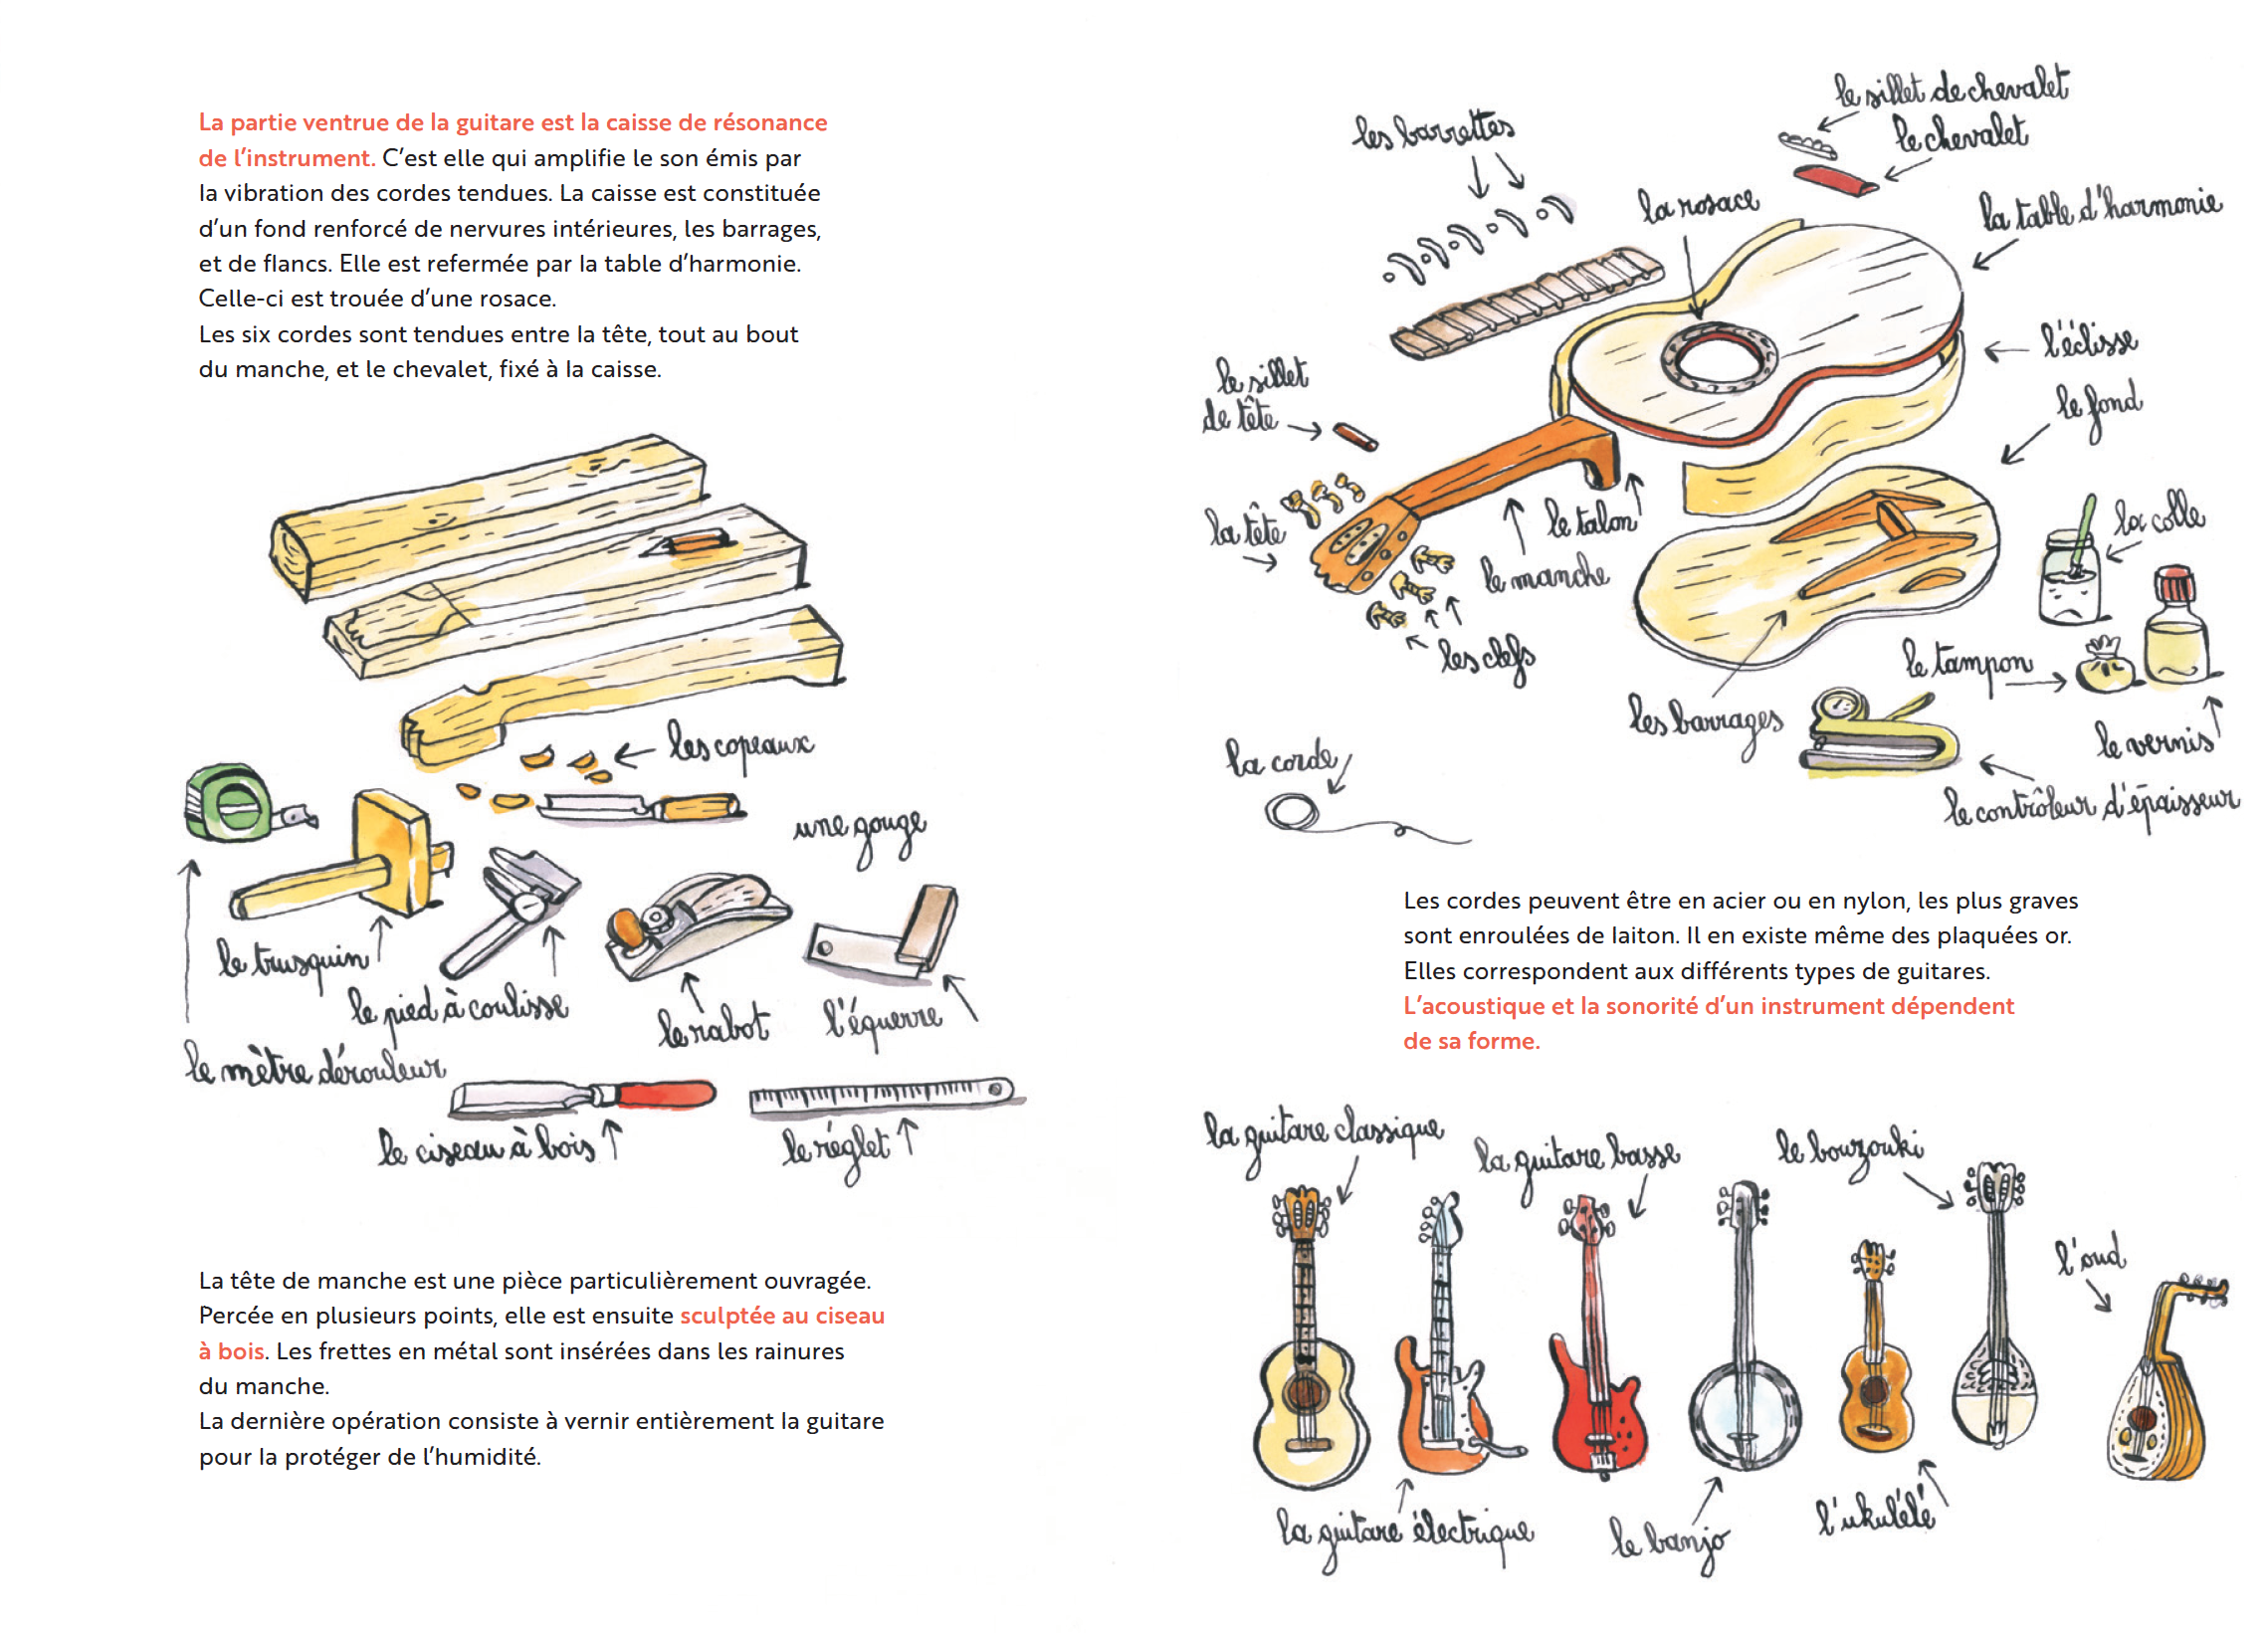 La partie ventrue de la guitare est la caisse de résonance
de l’instrument. C’est elle qui amplifie le son émis par
la vibration des cordes tendues. La caisse est constituée
d’un fond renforcé de nervures intérieures, les barrages,
et de flancs. Elle est refermée par la table d’harmonie.
Celle-ci est trouée d’une rosace.
Les six cordes sont tendues entre la tête, tout au bout
du manche, et le chevalet, fixé à la caisse.
les copeaux
une gouge
le trusquin
le pied à coulisse
le rabot
l'équerre
le mètre dérouleur
le ciseau à bois
le réglet
La tête de manche est une pièce particulièrement ouvragée.
Percée en plusieurs points, elle est ensuite sculptée au ciseau
à bois. Les frettes en métal sont insérées dans les rainures
du manche.
La dernière opération consiste à vernir entièrement la guitare
pour la protéger de l’humidité.
le sillet de chevalet
les barrettes
le chevalet
la rosace
la table d'harmonie
l'éclisse
le sillet
de tête
le fond
la tête
le talon
la colle
le manche
les clefs
le tampon
les barrages
le vernis
la corde
le contrôleur d'épaisseur
Les cordes peuvent être en acier ou en nylon, les plus graves
sont enroulées de laiton. Il en existe même des plaquées or.
Elles correspondent aux différents types de guitares.
L’acoustique et la sonorité d’un instrument dépendent
de sa forme.
la guitare classique
la guitare basse
le bouzouki
l'oud
la guitare électrique
le banjo
l'ukulélé